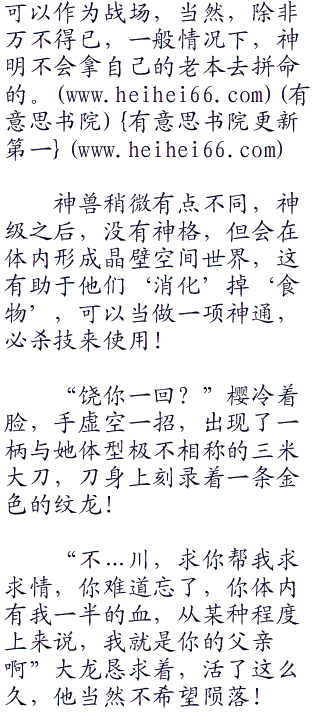 可以作为战场，当然，除非
万不得已，一般情况下，神
明不会拿自己的老本去拼命
的。(www.heihei66.com)(有
意思书院){有意思书院更新
第一}(www.heihei66.com)
神兽稍微有点不同，神
级之后，没有神格，但会在
体内形成晶壁空间世界，这
有助于他们‘消化’掉‘食
物’，可以当做一项神通，
必杀技来使用！
“饶你一回？”樱冷着
脸，手虚空一招，出现了一
柄与她体型极不相称的三米
大刀，刀身上刻录着一条金
色的纹龙！
“不…川，求你帮我求
求情，你难道忘了，你体内
有我一半的血，从某种程度
上来说，我就是你的父亲
啊”大龙恳求着，活了这么
久，他当然不希望陨落！